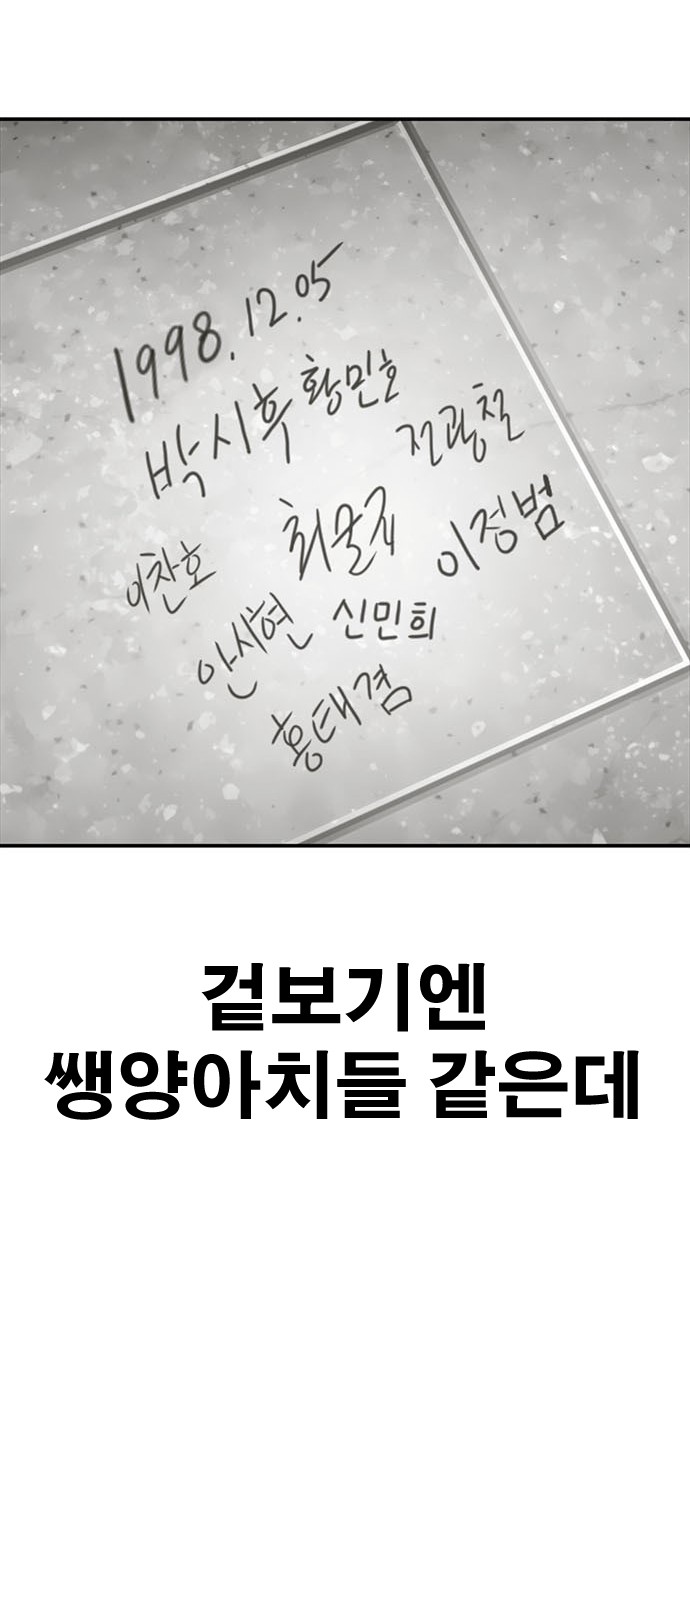 1998.12.05
박시후 황민호
전광철
이찬호 최윤재 이정범
안시현 신민희
홍태겸
겉보기엔
쌩양아치들 같은데